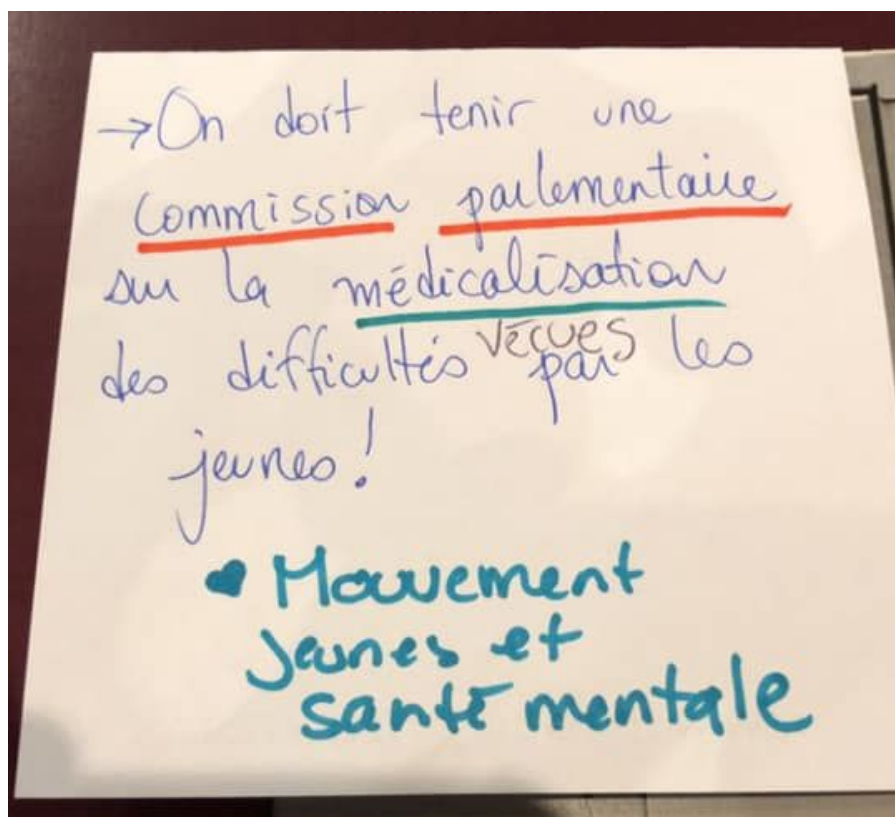 →On doit tenir une
Commission parlementaire
sur la médicalisation
des difficultés vécues par les
jeunes!
Mouvement
Jeunes et
santé mentale